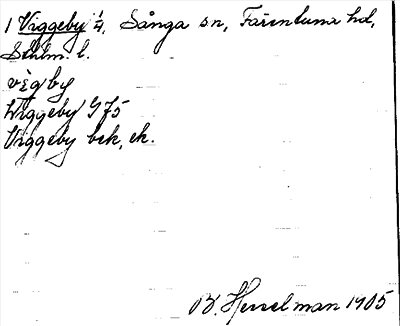 1 Viggeby 1/4, Sånga sn, Färentuna hd,
Sthlm. l.
vègby
Wiggeby G75
Viggeby bek, ek.
B. Hesselman 1905